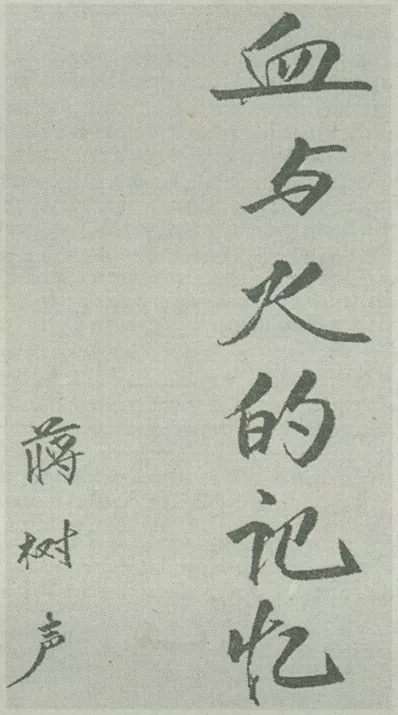 血与火的记忆
蒋树声